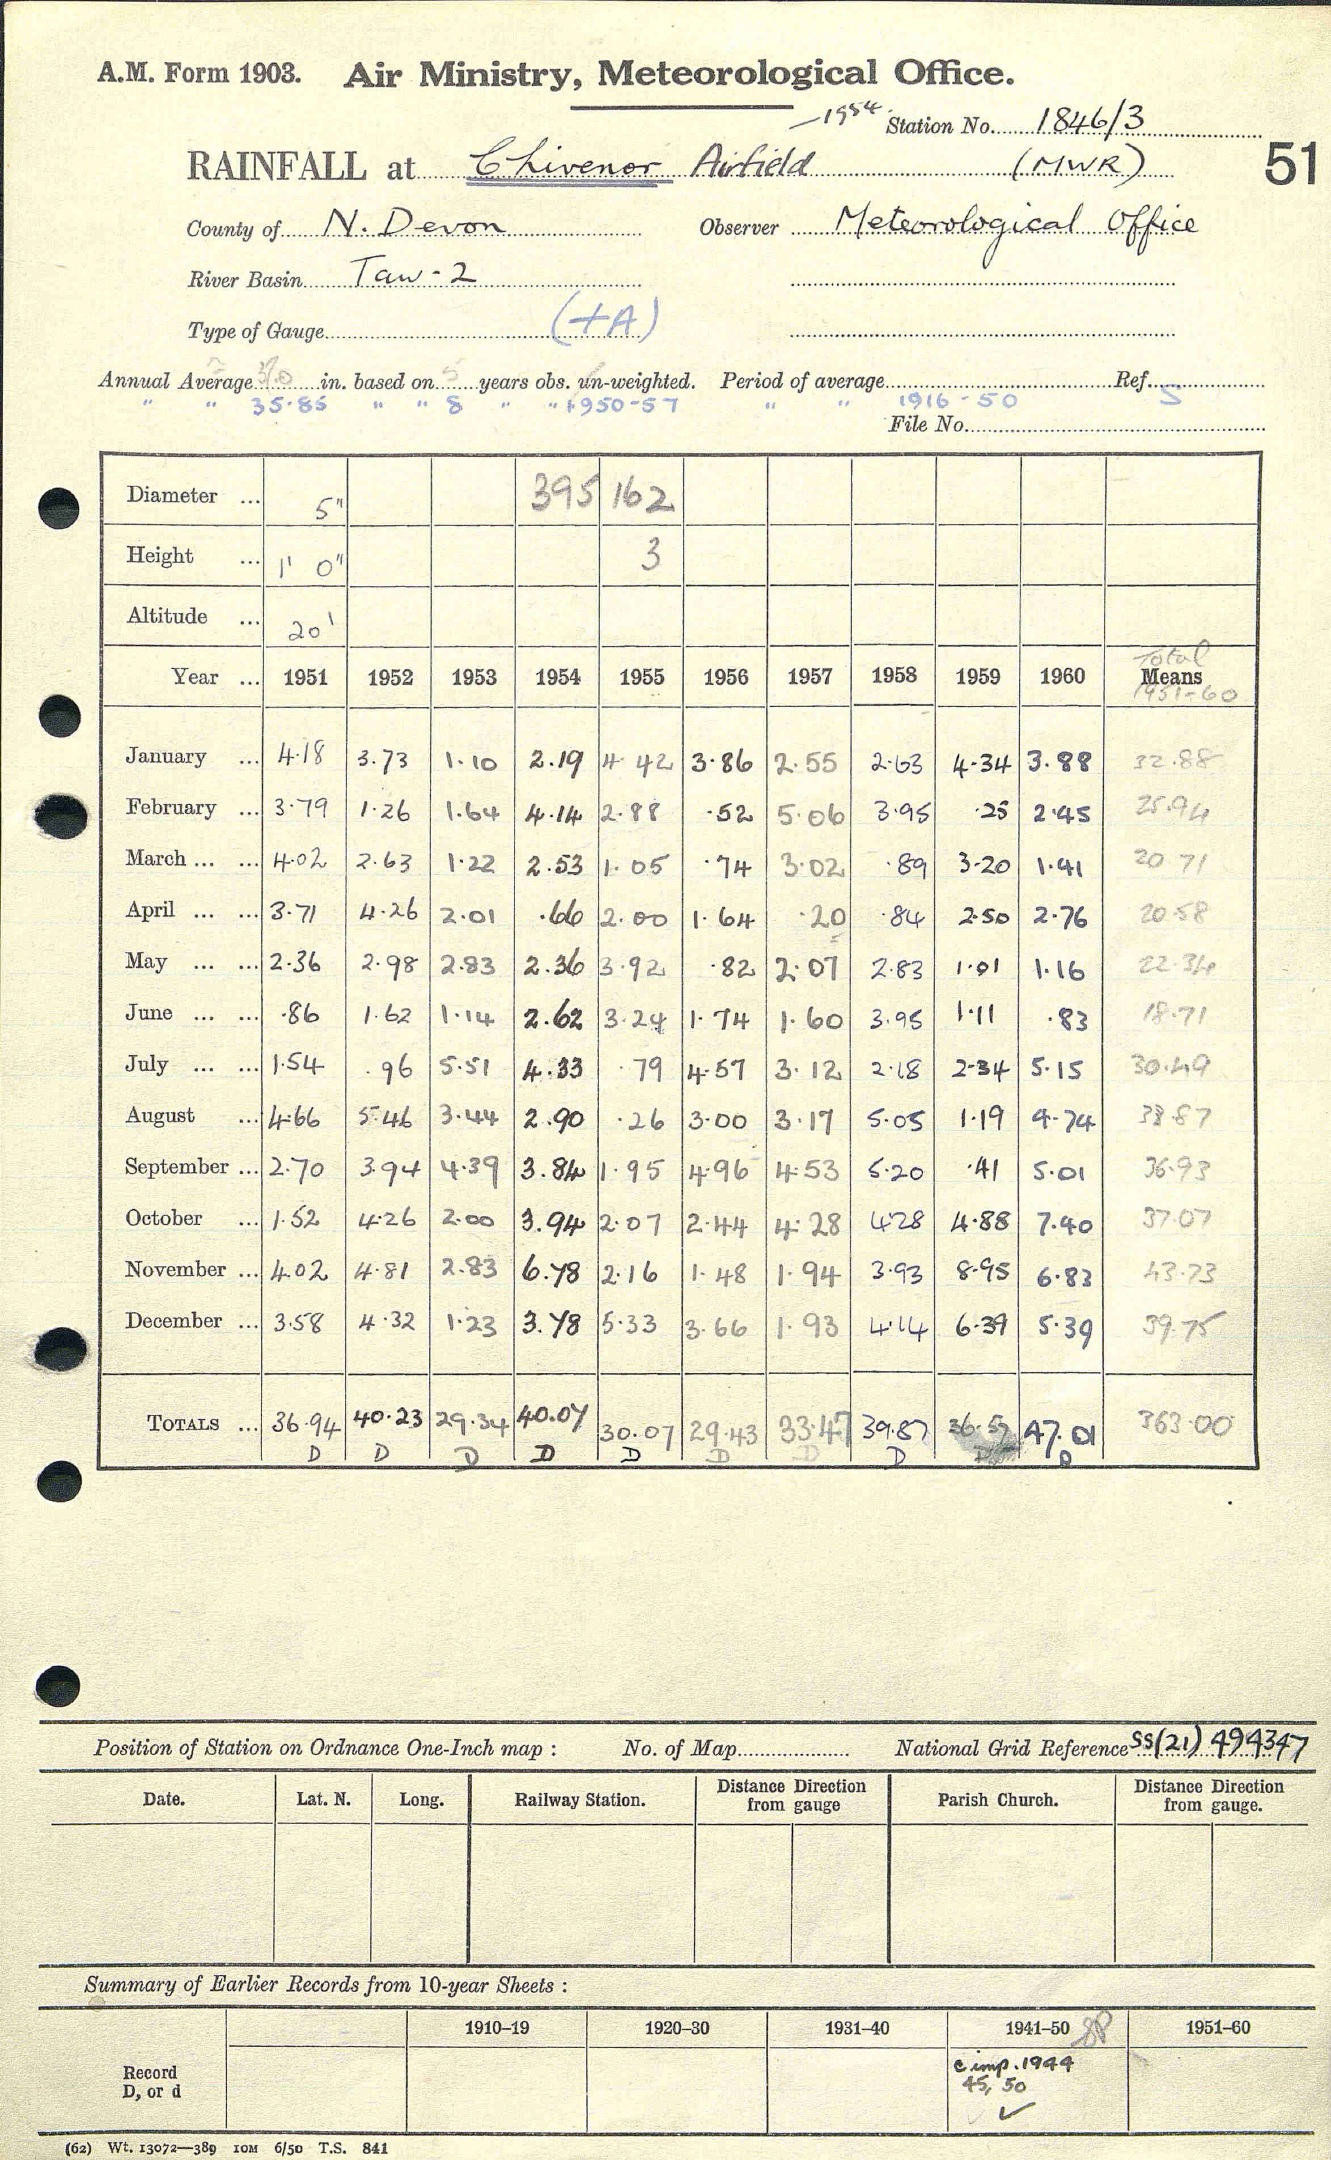 A.M. Form 1903. Air Ministry, Meteorological Office.
—1954. Station No. 1846/3
RAINFALL at Chivenor Airfield (MWR) 51
County of N. Devon Observer Meteorological Office
River Basin Taw-2
Type of Gauge (+A)
Annual Average in. based on 5 years obs. un-weighted. Period of average Ref.
" " 35.85 " " 8 " " 1950-57 " " 1916-50 S
File No.
Diameter ... 5" 395 162
Height ... 1' 0" 3
Altitude ... 20'
Total
Year ... 1951 1952 1953 1954 1955 1956 1957 1958 1959 1960 Means
1951-60
January ... 4.18 3.73 1.10 2.19 4.42 3.86 2.55 2.63 4.34 3.88 32.88
February ... 3.79 1.26 1.64 4.14 2.88 .52 5.06 3.95 .25 2.45 25.94
March ... ... 4.02 2.63 1.22 2.53 1.05 .74 3.02 .89 3.20 1.41 20 71
April ... ... 3.71 4.26 2.01 .66 2.00 1.64 .20 .84 2.50 2.76 20.58
May ... ... 2.36 2.98 2.83 2.36 3.92 .82 2.07 2.83 1.01 1.16 22.34
June ... ... .86 1.62 1.14 2.62 3.24 1.74 1.60 3.95 1.11 .83 18.71
July ... ... 1.54 .96 5.51 4.33 .79 4.57 3.12 2.18 2.34 5.15 30.49
August ... 4.66 5.46 3.44 2.90 .26 3.00 3.17 5.05 1.19 9.74 38.87
September ... 2.70 3.94 4.39 3.84 1.95 4.96 4.53 5.20 .41 5.01 36.93
October ... 1.52 4.26 2.00 3.94 2.07 2.44 4.28 4.28 4.88 7.40 37.07
November ... 4.02 4.81 2.83 6.78 2.16 1.48 1.94 3.93 8.95 6.83 43.73
December ... 3.58 4.32 1.23 3.78 5.33 3.66 1.93 4.14 6.39 5.39 39.75
TOTALS ... 36.94 40.23 29.34 40.07 30.07 29.43 33.47 39.87 36.57 47.01 363.00
D D D D D D D D D D
Position of Station on Ordnance One-Inch map : No. of Map National Grid Reference SS(21) 494347
Date. Lat. N. Long. Railway Station. Distance Direction from gauge Parish Church. Distance Direction from gauge.
Summary of Earlier Records from 10-year Sheets :
1910–19 1920–30 1931–40 1941–50 SP 1951–60
Record
D, or d
c imp. 1944
45, 50
✓
(62) Wt. 13072—389 10M 6/50 T.S. 841